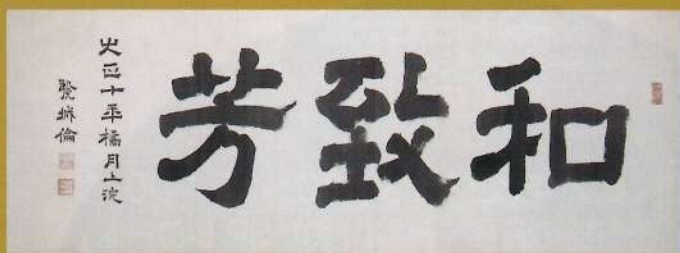 和致芳
大正十年橘月上浣
城倫